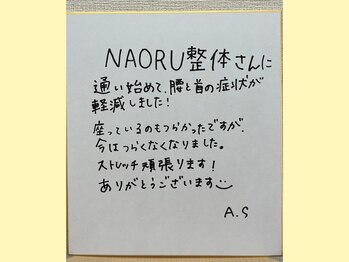 NAORU整体さんに
通い始めて、腰と首の症状が
軽減しました!
座っているのもつらかったですが、
今はつらくなくなりました。
ストレッチ頑張ります!
ありがとうございます
A.S